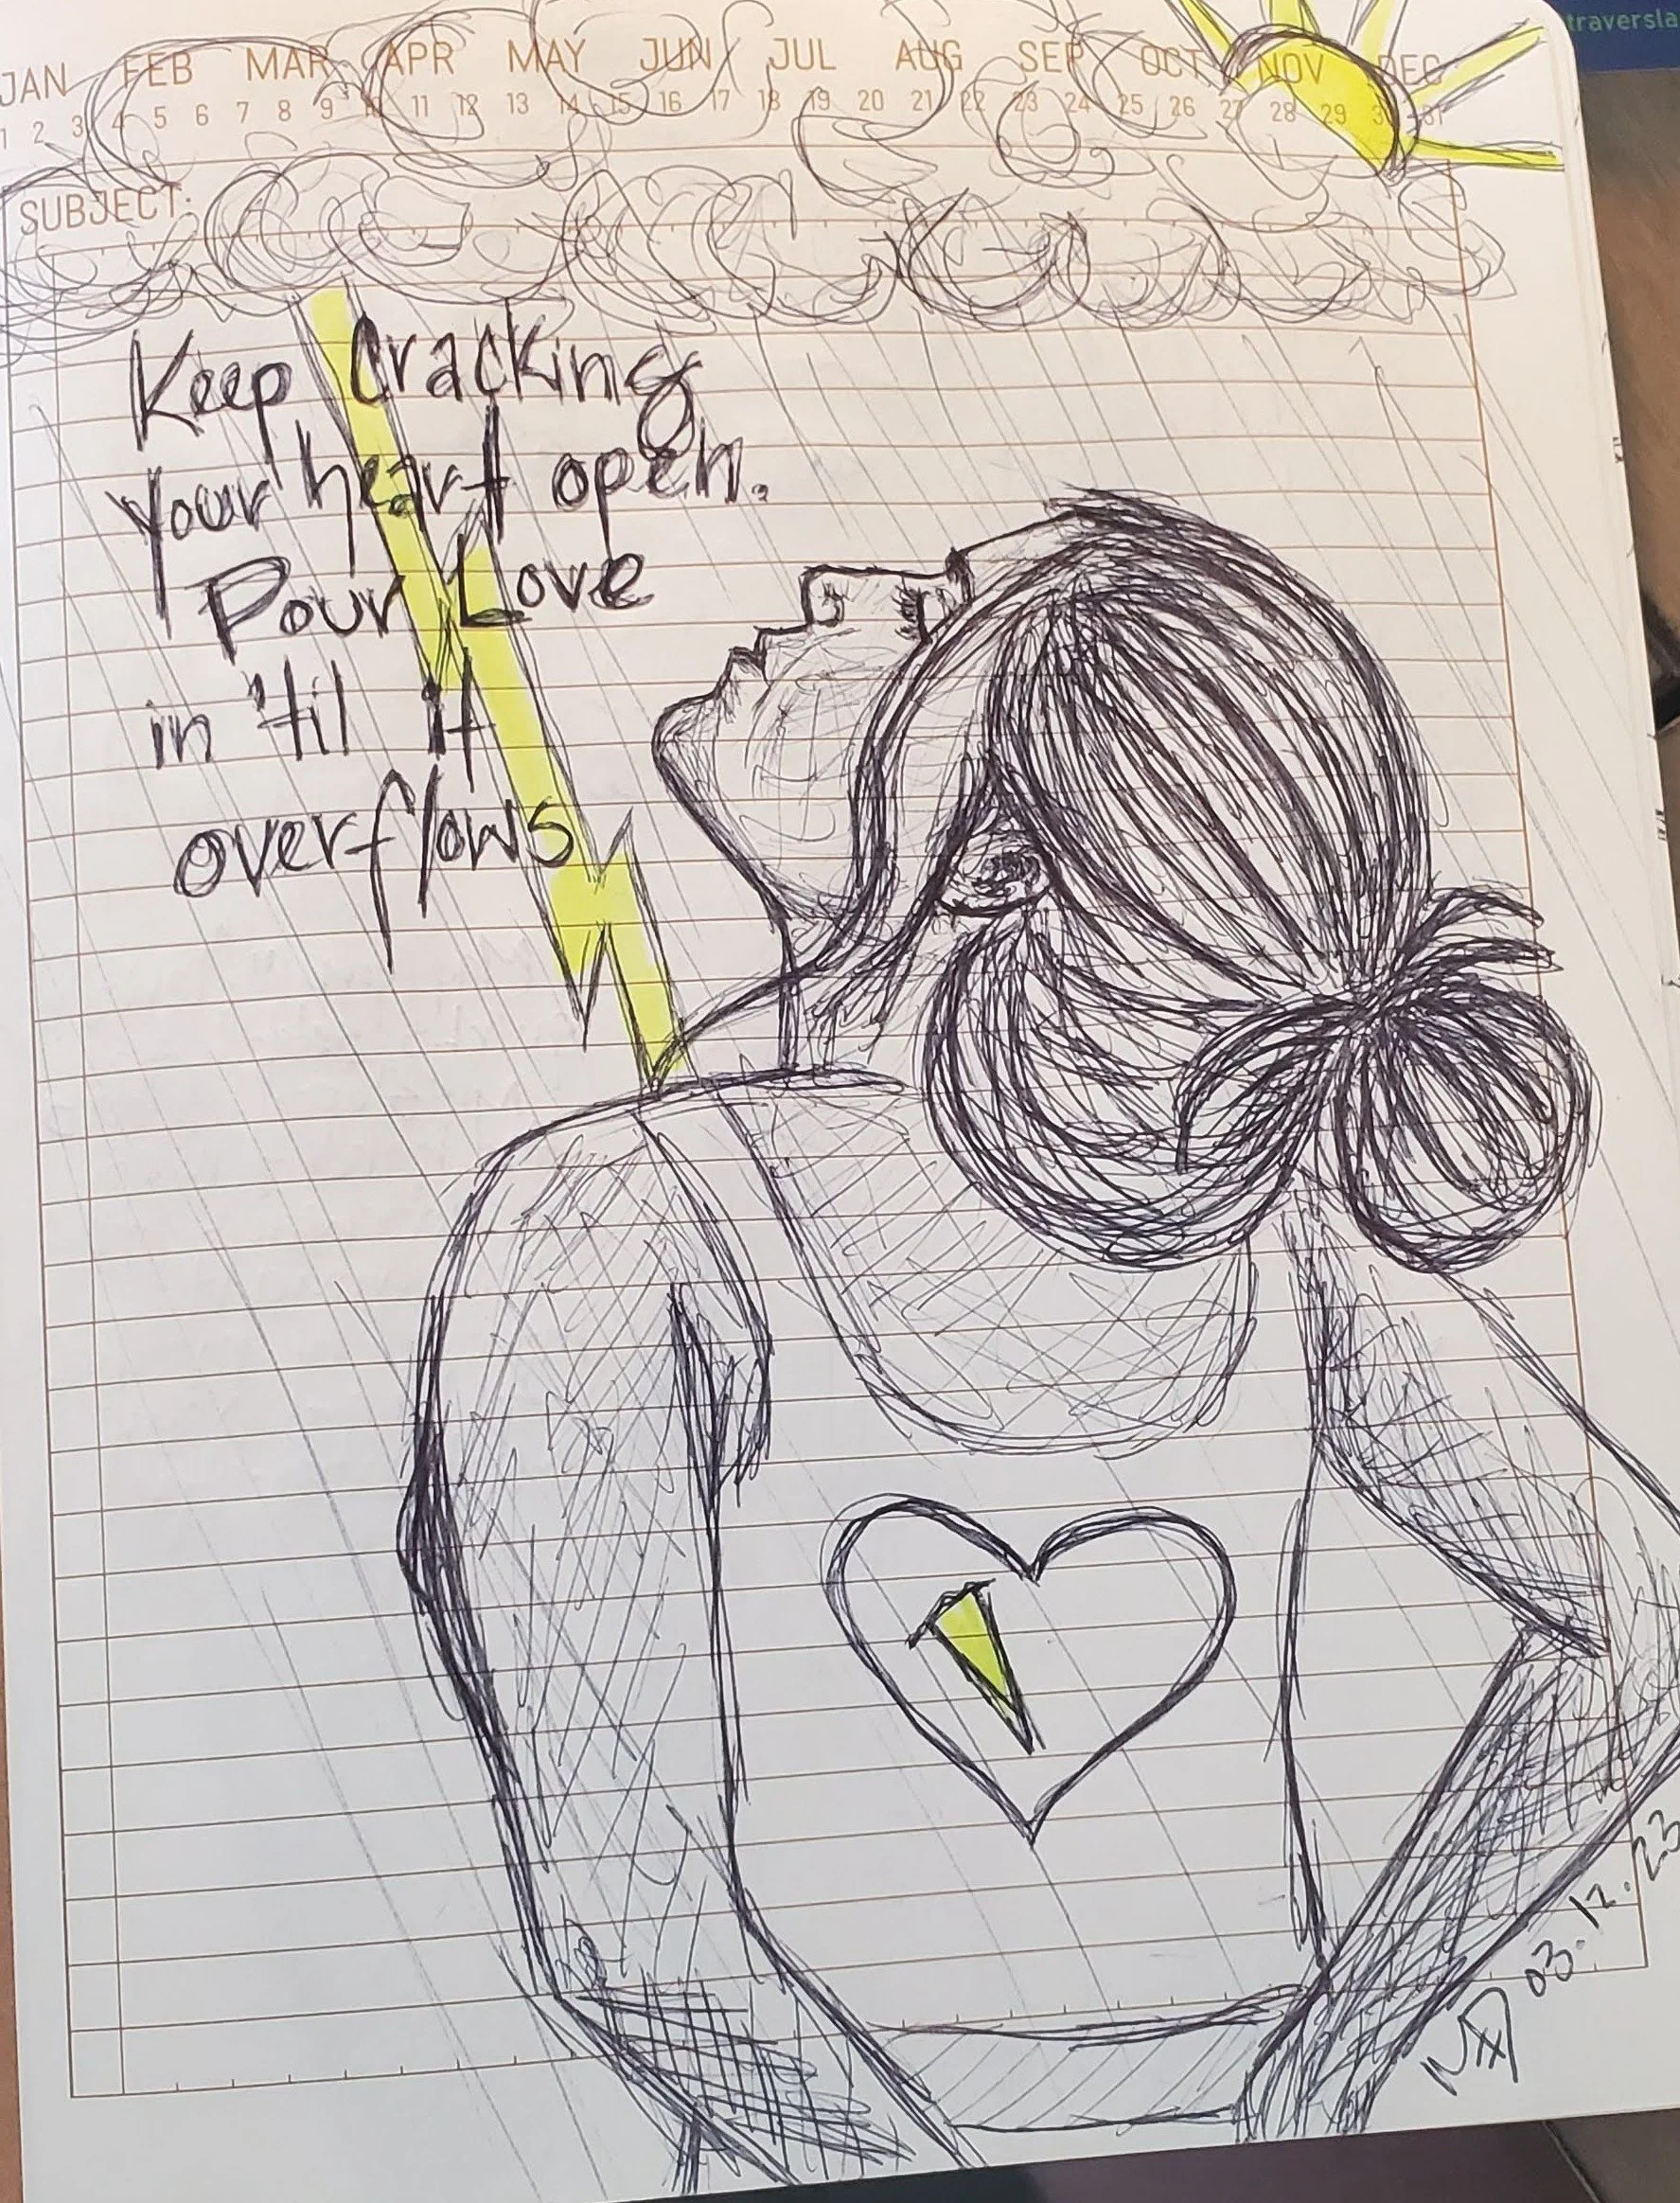 JAN FEB MAR APR MAY JUN JUL AUG SEP OCT NOV DEC
1 2 3 4 5 6 7 8 9 10 11 12 13 14 15 16 17 18 19 20 21 22 23 24 25 26 27 28 29 30 31
SUBJECT:
Keep Cracking
your heart open.
Pour Love
in 'til it
overflows
03.12.23